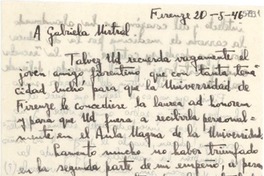 Firenze 20-5-46
A Gabriela Mistral
Talvez Ud recuerda vagamente el
joven amigo florentino que con tanta tena-
cidad luchó para que la Universidad de
Firenze le concediese la laurea ad honorem
y para que Ud fuera a recibirla personal-
mente en el Aula Magna de la Universidad.
Lamento mucho no haber triunfado
en la segunda parte de mi empeño, a pesar